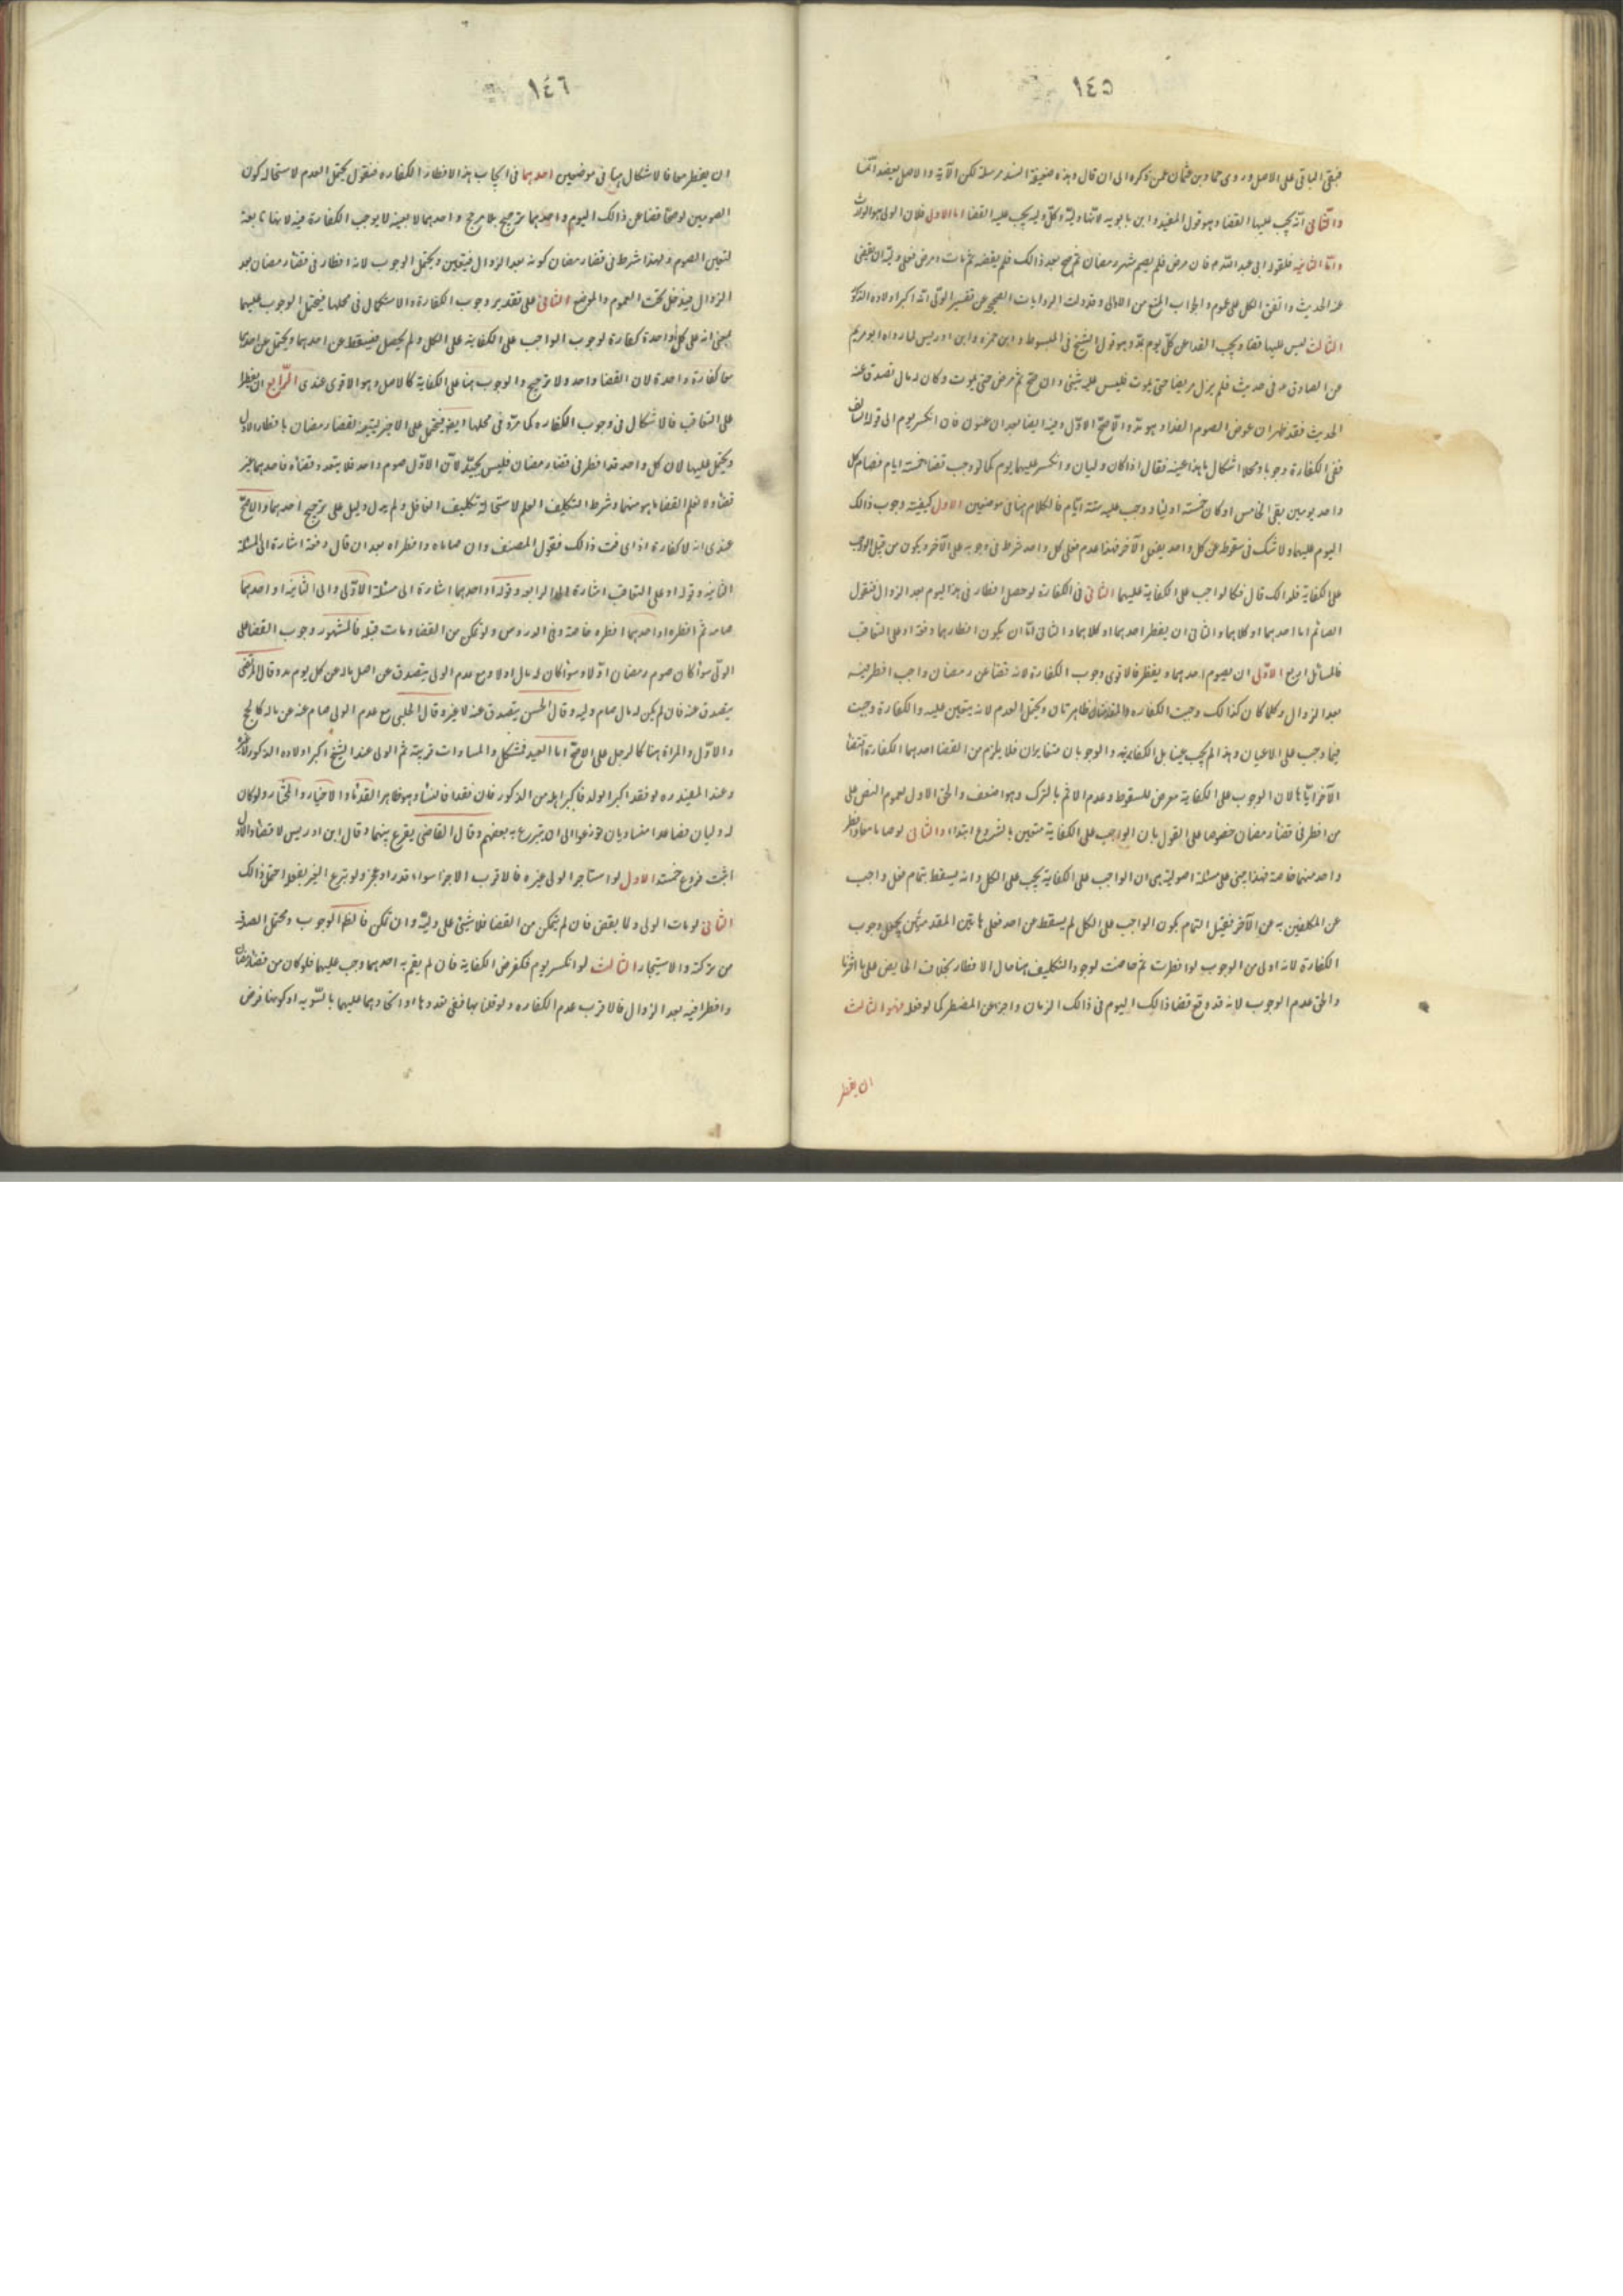 ١٤٥
فبقى الباقى على الاصل وروى حماد بن عثمان عمن ذكره الى ان قال وهذه ضعيفة السند مرسلة لكن الآية والاصل يعضد انها
والثانى انه يجب عليها القضاء وهو قول المفيد وابن بابويه لانها ولية وكل ولية يجب عليه القضا اما الاولى فلان الولى هو الوارث
واما الثانيه فلقول ابى عبد الله م فان مرض فلم يصم شهر رمضان ثم صح بعد ذالك فلم يقضه ثم مات ومرض فعلى وليه ان يقضى
عنه الحديث واتفق الكل على عموم والجواب المنع من الاولى وقد دلت الروايات الصحيحه عن تفسير الولى انه اكبر اولاده الذكور
الثالث ليس عليها قضا ويجب الفدا عن كل يوم بمد وهو قول الشيخ فى المبسوط وابن حمزه وابن ادريس لما رواه ابو مريم
عن الصادق م فى حديث فلم يزل مريضا حتى يموت فليس عليه شيئى وان صح ثم مرض حتى يموت وكان له مال تصدق عنه
الحديث فقد ظهر ان عوض الصوم الفدا وهو مد والاصح الاول وفيه ايضا بعد ان عنون فان انكسر يوم الى قوله السالف
ففى الكفارة وجوبا ومحلا اشكال ما هذا عينه فقال اذا كان وليان وانكسر عليهما يوم كما لو وجب قضا خمسة ايام فصام كل
واحد يومين بقى الخامس او كان خمسة اوليا ووجب عليه ستة ايام فالكلام هنا فى موضعين الاول كيفية وجوب ذالك
اليوم عليهما ولا شك فى سقوطه عن كل واحد بفعل الآخر فهذا عدم فعل كل واحد شرط فى وجوبه على الآخر ويكون من قبيل الواجب
على الكفاية فلذالك قال فكالواجب على الكفاية عليهما الثانى فى الكفارة لو حصل افطار فى هذا اليوم بعد الزوال فنقول
الصائم اما احدهما او كلاهما والثانى ان يفطر احدهما او كلاهما والثانى اما ان يكون افطارهما دفعة او على التعاقب
فالمسائل اربع الاولى ان يصوم احدهما ويفطر فالاقوى وجوب الكفارة لانه قضا عن رمضان واجب افطر فيه
بعد الزوال وكلما كان كذالك وجبت الكفاره والمقدمتان ظاهرتان ويحتمل العدم لانه يتعين عليه والكفارة وجبت
فيما وجب على الاعيان وهذا لم يجب عينا بل الكفايه والوجوبان متغايران فلا يلزم من اقتضا احدهما الكفارة اقتضا
الآخر اياها لان الوجوب على الكفاية معرض للسقوط وعدم الاثم بالترك وهو اضعف والحق الاول لعموم النص على
من افطر فى قضاء رمضان خصوصا على القول بان الواجب على الكفاية متعين بالشروع ابتداء والثانى لو صاما معا وافطر
واحد منهما خاصة فهذا مبنى على مسئلة اصولية هى ان الواجب على الكفاية يجب على الكل وانه يسقط بتمام فعل واجب
عن المكلفين به عن الآخر فقبل التمام يكون الواجب على الكل لم يسقط عن احد فعلى هاتين المقدمتين يحتمل وجوب
الكفارة لانه اولى من الوجوب لو افطرت ثم حاضت لوجود التكليف هنا حال الافطار بخلاف الحايض على ما اخرنا
والحق عدم الوجوب لانه قد وقع قضا ذالك اليوم فى ذالك الزمان واجزا عن المضطر كما لو فعله فهو الثالث
ان يفطر
١٤٦
ان يفطر معا فالاشكال هنا فى موضعين احدهما فى ايجاب هذا الافطار الكفاره فنقول يحتمل العدم لاستحالة كون
الصومين لو صحا قضا عن ذالك اليوم واحدهما ترجيح بلا مرجح واحدهما لا بعينه لا يوجب الكفارة فيه لانها تابعة
لتعين الصوم ولهذا شرط فى قضاء رمضان كونه بعد الزوال فيتعين ويحتمل الوجوب لانه افطار فى قضاء رمضان بعد
الزوال فيدخل تحت العموم والموضع الثانى على تقدير وجوب الكفارة والاشكال فى محلها فيحتمل الوجوب عليهما
بمعنى انه على كل واحدة كفارة لوجوب الواجب على الكفاية على الكل ولم يحصل فيسقط عن احدهما ويحتمل عن احدهما
معا كفارة واحدة لان القضا واحد ولا ترجيح والوجوب هنا على الكفاية كالاصل وهو الاقوى عندى الرابع ان يفطرا
على التعاقب فالاشكال فى وجوب الكفاره كما مر وفى محلها ايضا فيحتمل على الاخير لتعينه لقضاء رمضان بافطار الاول
ويحتمل عليهما لان كل واحد قد افطر فى قضاء رمضان فليس بجيد لان الاول صوم واحد فلا يتعدد قضاؤه فاحدهما غير
قضاء ولا نعلم القضا ما هو منهما وشرط التكليف العلم لاستحالة تكليف الغافل ولم يدل دليل على ترجيح احدهما والاصح
عندى انه لا كفارة اذا عرفت ذالك فقول المصنف وان صاماه وافطراه بعد ان قال دفعة اشارة الى المسئلة
الثانيه وقوله او على التعاقب اشارة الى الرابعه وقوله او احدهما اشارة الى مسئلة الاولى والى الثانيه او احدهما
صامه ثم افطره او احدهما افطره خاصة وفى الدروس ولو تمكن من القضا ومات قبله فالمشهور وجوب القضا على
الولى سواء كان صوم رمضان اولا وسواء كان له مال او لا ومع عدم الولى يتصدق عن اصل ماله عن كل يوم بمد وقال المرتضى
يتصدق عنه فان لم يكن له مال صام وليه وقال الحسن يتصدق عنه لا غير وقال الحلبى مع عدم الولى صام عنه من ماله كالحج
والاول والمراة هنا كالرجل على الاصح اما العبد فمشكل والمساوات قريبة ثم الولى عند الشيخ اكبر اولاده الذكور لا غير
وعند المفيد ره لو فقد اكبر الولد فاكبر اهله من الذكور فان فقد فالنساء وهو ظاهر القدما والاخبار والمختار ولو كان
له وليان فصاعدا متساويان توزعوا الى ان يتبرع به بعضهم وقال القاضى يقرع بينهما وقال ابن ادريس لا قضاء والاول
اثبت فروع خمسة الاول لو استاجر الولى غيره فالاقرب الاجزا سواء قدر او عجز ولو تبرع الغير بفعله احتمل ذالك
الثانى لو مات الولى ولا يقض فان لم يتمكن من القضا فلا شيئى على وليه وان تمكن فالظاهر الوجوب ويحتمل الصدقه
من تركته والاستيجار الثالث لو انكسر يوم فكفرض الكفاية فان لم يقم به احدهما وجب عليهما فلو كان من قضاء رمضان
وافطرا فيه بعد الزوال فالاقرب عدم الكفاره ولو قلنا بها ففى تعددها او اتحادهما عليهما بالسويه او كونها فرض